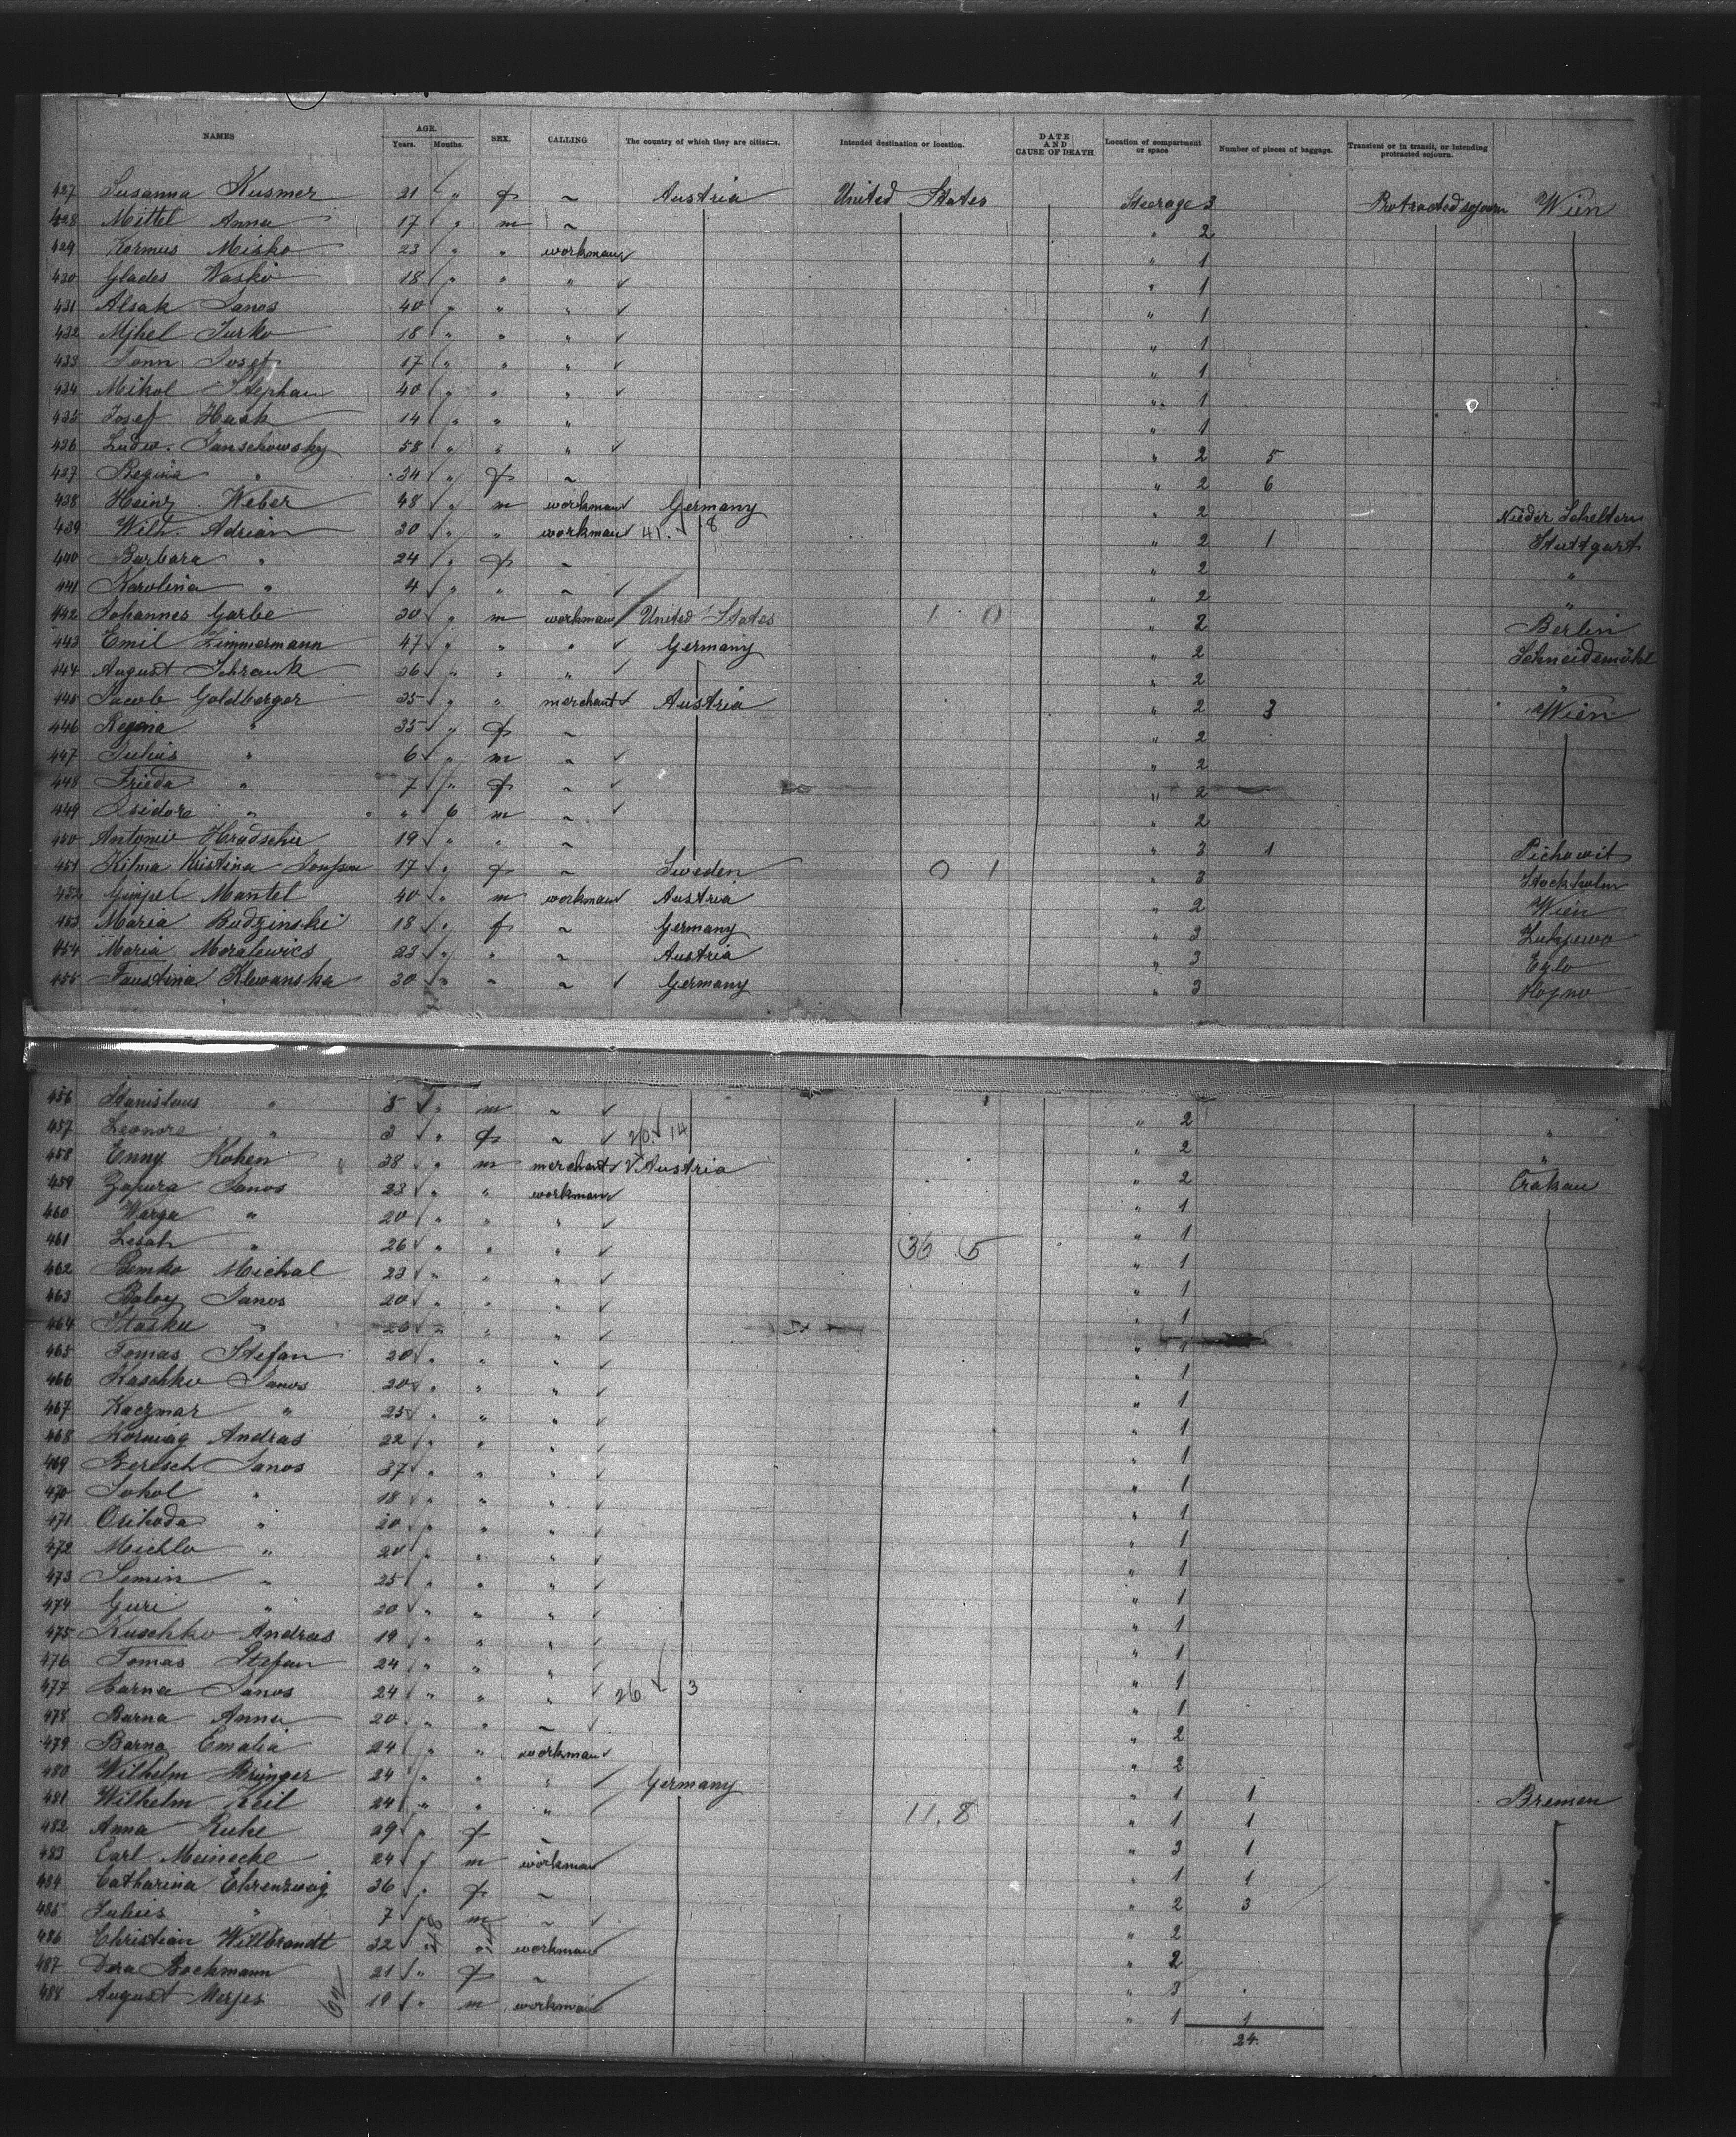 NAMES AGE. Years. Months. SEX. CALLING The country of which they are citizens. Intended destination or location. DATE AND CAUSE OF DEATH Location of compartment or space Number of pieces of baggage. Transient or in transit, or intending protracted sojourn.
427 Susanna Kusmer 21 " f ~ Austria United States Steerage 3 Protracted sojourn Wien
428 Mittel Anna 17 " m ~ " 2
429 Kormus Misko 23 " " workman " 1
430 Glades Wasko 18 " " " " 1
431 Alsak Janos 40 " " " " 1
432 Mihel Jurko 18 " " " " 1
433 Jonn Josef 17 " " " " 1
434 Mikol Stephan 40 " " " " 1
435 Josef Hask 14 " " " " 1
436 Ludw. Janschowsky 58 " " " " 2 5
437 Regina " 34 " f ~ " 2 6
438 Heinz Weber 48 " m workman Germany " 2 Nieder
439 Wilh. Adrian 30 " " workman 41. 8 " 2 1 Stuttgart
440 Barbara " 24 " f ~ " 2 "
441 Karolina " 4 " " ~ " 2 "
442 Johannes Garbe 30 " m workman United States 1 0 " 2 Berlin
443 Emil Zimmermann 47 " " " Germany " 2 Schneidemühl
444 August Schrank 36 " " " " 2 "
445 Jacob Goldberger 35 " " merchant Austria " 2 3 Wien
446 Regina " 35 " f ~ " 2
447 Julius " 6 " m ~ " 2
448 Frieda " 7 " f ~ " 2
449 Isidore " " 6 m ~ " 2
450 Antonie Hradschu 19 " " ~ " 3 1
451 Hilma Kristina Jonsson 17 " f ~ Sweden 0 1 " 3 Stockholm
452 Gimpel Mantel 40 " m workman Austria " 2 Wien
453 Maria Budzinski 18 " f ~ Germany " 3
454 Maria Moralewics 23 " " ~ Austria " 3
455 Faustina Klewanska 30 " " ~ Germany " 3
456 Stanislaus " 5 " m ~ " 2 "
457 Leonore " 3 " f ~ 20. 14 " 2 "
458 Enny Kohen 38 " m merchant Austria " 2 Crakau
459 Zapura Janos 23 " " workman " 1
460 Warga " 20 " " " " 1
461 Lesah " 26 " " " 36 5 " 1
462 Bemko Michal 23 " " " " 1
463 Baloy Janos 20 " " " " 1
464 Stasku " 20 " " " " 1
465 Tomas Stefan 20 " " " " 1
466 Kaschko Janos 20 " " " " 1
467 Kaczmar " 25 " " " " 1
468 Andras 22 " " " " 1
469 Beresch Janos 37 " " " " 1
470 Sohol " 18 " " " " 1
471 " 20 " " " " 1
472 Michlo " 20 " " " " 1
473 Semin " 25 " " " " 1
474 Guri " 20 " " " " 1
475 Kuschko Andras 19 " " " " 1
476 Tomas Stefan 24 " " " " 1
477 Barna Janos 24 " " " 26 3 " 1
478 Barna Anna 20 " " ~ " 2
479 Barna Emalia 24 " " workman " 2
480 Wilhelm 24 " " " Germany " 1 1 Bremen
481 Wilhelm Keil 24 " " " 11. 8 " 1 1
482 Anna Ruhe 29 " f ~ " 3 1
483 Carl Meinecke 24 " m workman " 1 1
484 Catharina Ehrenzweig 36 " f ~ " 2 3
485 Julius " 7 " m ~ " 2
486 Christian Willbrandt 32 " " workman " 2
487 Dora Bockmann 21 " f ~ " 3
488 August Merjes 19 " m workman " 1 1
24.